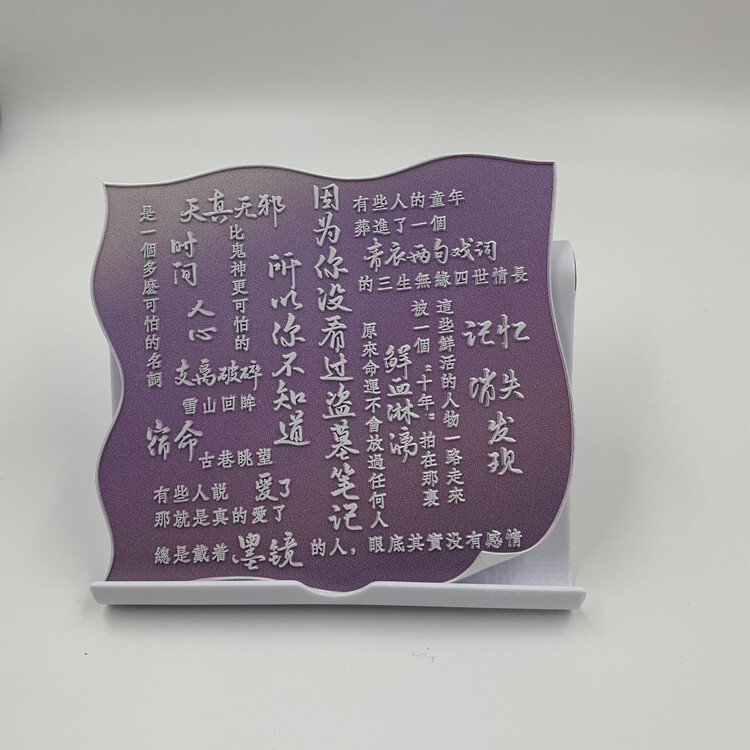 因为你没看过盗墓笔记
所以你不知道
天真无邪
是一個多麽可怕的名詞
时间
比鬼神更可怕的
人心
支离破碎
雪山回眸
宿命
古巷眺望
有些人説 爱了
那就是真的愛了
有些人的童年
葬進了一個
青衣两句戏词
的三生無緣四世情長
這些鮮活的人物一路走來
被一個“十年”拍在那裏
鲜血淋漓
原來命運不會放過任何人
记忆
消失
发现
總是戴着墨镜的人，眼底其實没有感情